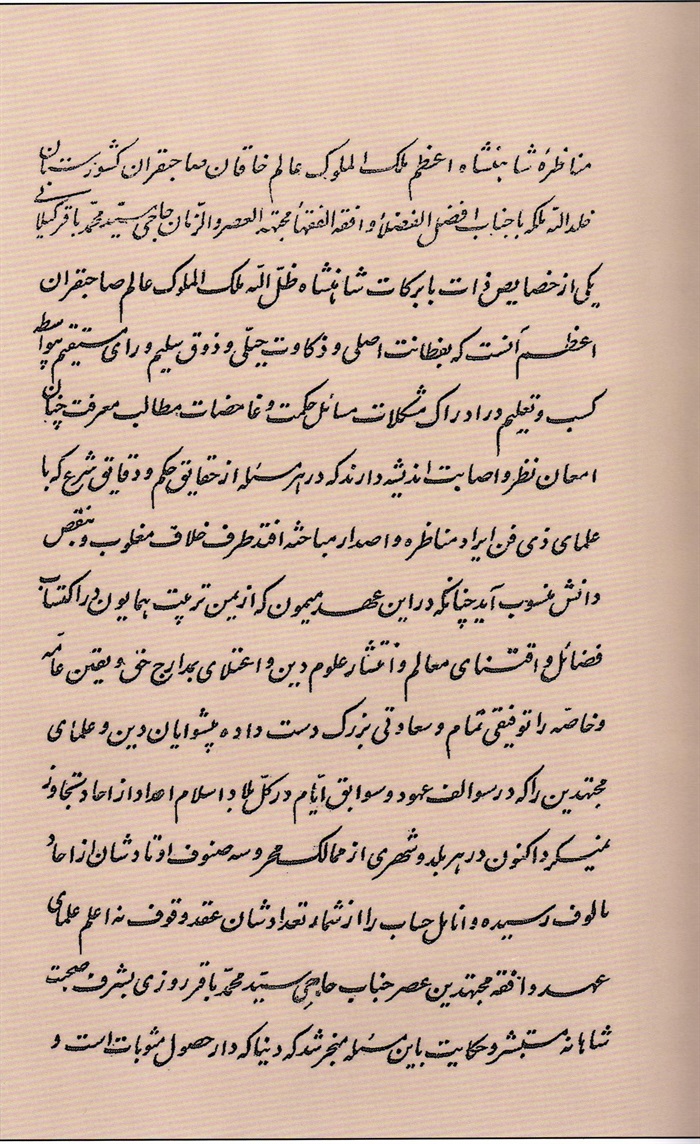 مناظرهٔ شاهنشاه اعظم ملک الملوک عالم خاقان صاحبقران کشورستان
خلدالله ملکه با جناب افضل الفضلاء و افقه الفقهاء مجتهد العصر و الزمان حاجی سید محمد باقر گیلانی
یکی از خصایص ذات با برکات شاهنشاه ظلّ الله ملک الملوک عالم صاحبقران
اعظم آنست که بفطانت اصلی و ذکاوت جبلّی و ذوق سلیم و رای مستقیم بواسطه
کسب و تعلیم در ادراک مشکلات مسائل حکمت و غامضات مطالب معرفت چنان
امعان نظر و اصابت اندیشه دارند که در هر مسئله از حقایق حکم و دقایق شرع که با
علمای ذی فن ایراد مناظره و اصدار مباحثه افتد طرف خلاف مغلوب و بنقص
دانش منسوب آید چنانکه در این عهد میمون که از یمن تربیت همایون در اکتساب
فضائل و اقتنای معالم و انتشار علوم دین و اعتلای بمدارج حق و یقین عامّه
و خاصّه را توفیقی تمام و سعادتی بزرگ دست داده پیشوایان دین و علمای
مجتهدین را که در سوالف عهود و سوابق ایّام در کلّ بلاد اسلام اعداد از احاد تجاوز
نمیکرد اکنون در هر بلد و شهری از ممالک محروسه صنوف اوتادشان از احاد
بالوف رسیده و انامل حساب را از شماره تعدادشان عقد وقوف نه اعلم علمای
عهد و افقه مجتهدین عصر جناب حاجی سیّد محمّد باقر روزی بشرف صحبت
شاهانه مستبشر و حکایت باین مسئله منجر شد که دنیا که دار حصول مثوبات است و